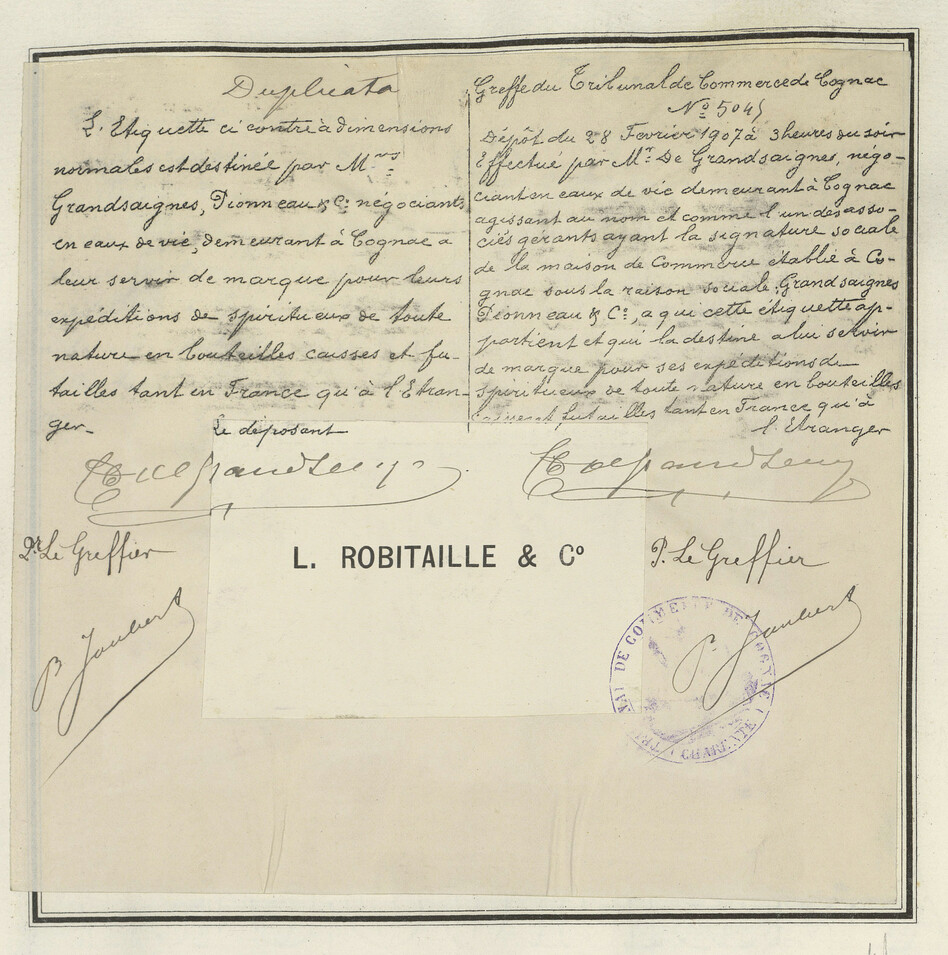 Duplicata
L'Etiquette ci contre à dimensions
normales est destinée par Mrs
Grandsaignes, Pionneau & Ce négociants
en eaux de vie, demeurant à Cognac a
leur servir de marque pour leurs
expéditions de spiritueux de toute
nature en bouteilles caisses et fu-
tailles tant en France qu'à l'Etran-
ger_
Le déposant
Pr Le Greffier
P Joubert
Greffe du Tribunal de Commerce de Cognac
No 5045
Dépôt du 28 Fevrier 1907 à 3 heures du soir
Effectué par Mr De Grandsaignes, négo-
ciant en eaux de vie demeurant à Cognac
agissant au nom et comme l'un des asso-
ciés gérants ayant la signature sociale
de la maison de Commerce établie à Co-
gnac sous la raison sociale: Grandsaignes
Pionneau & Ce, a qui cette étiquette ap-
partient et qui la destine a lui servir
de marque pour ses expéditions de
spiritueux de toute nature en bouteilles
caisses et futailles tant en France qu'à
l'Etranger
P. Le Greffier
P. Joubert
L. ROBITAILLE & Co
TRIBUNAL DE COMMERCE DE COGNAC
(CHARENTE)